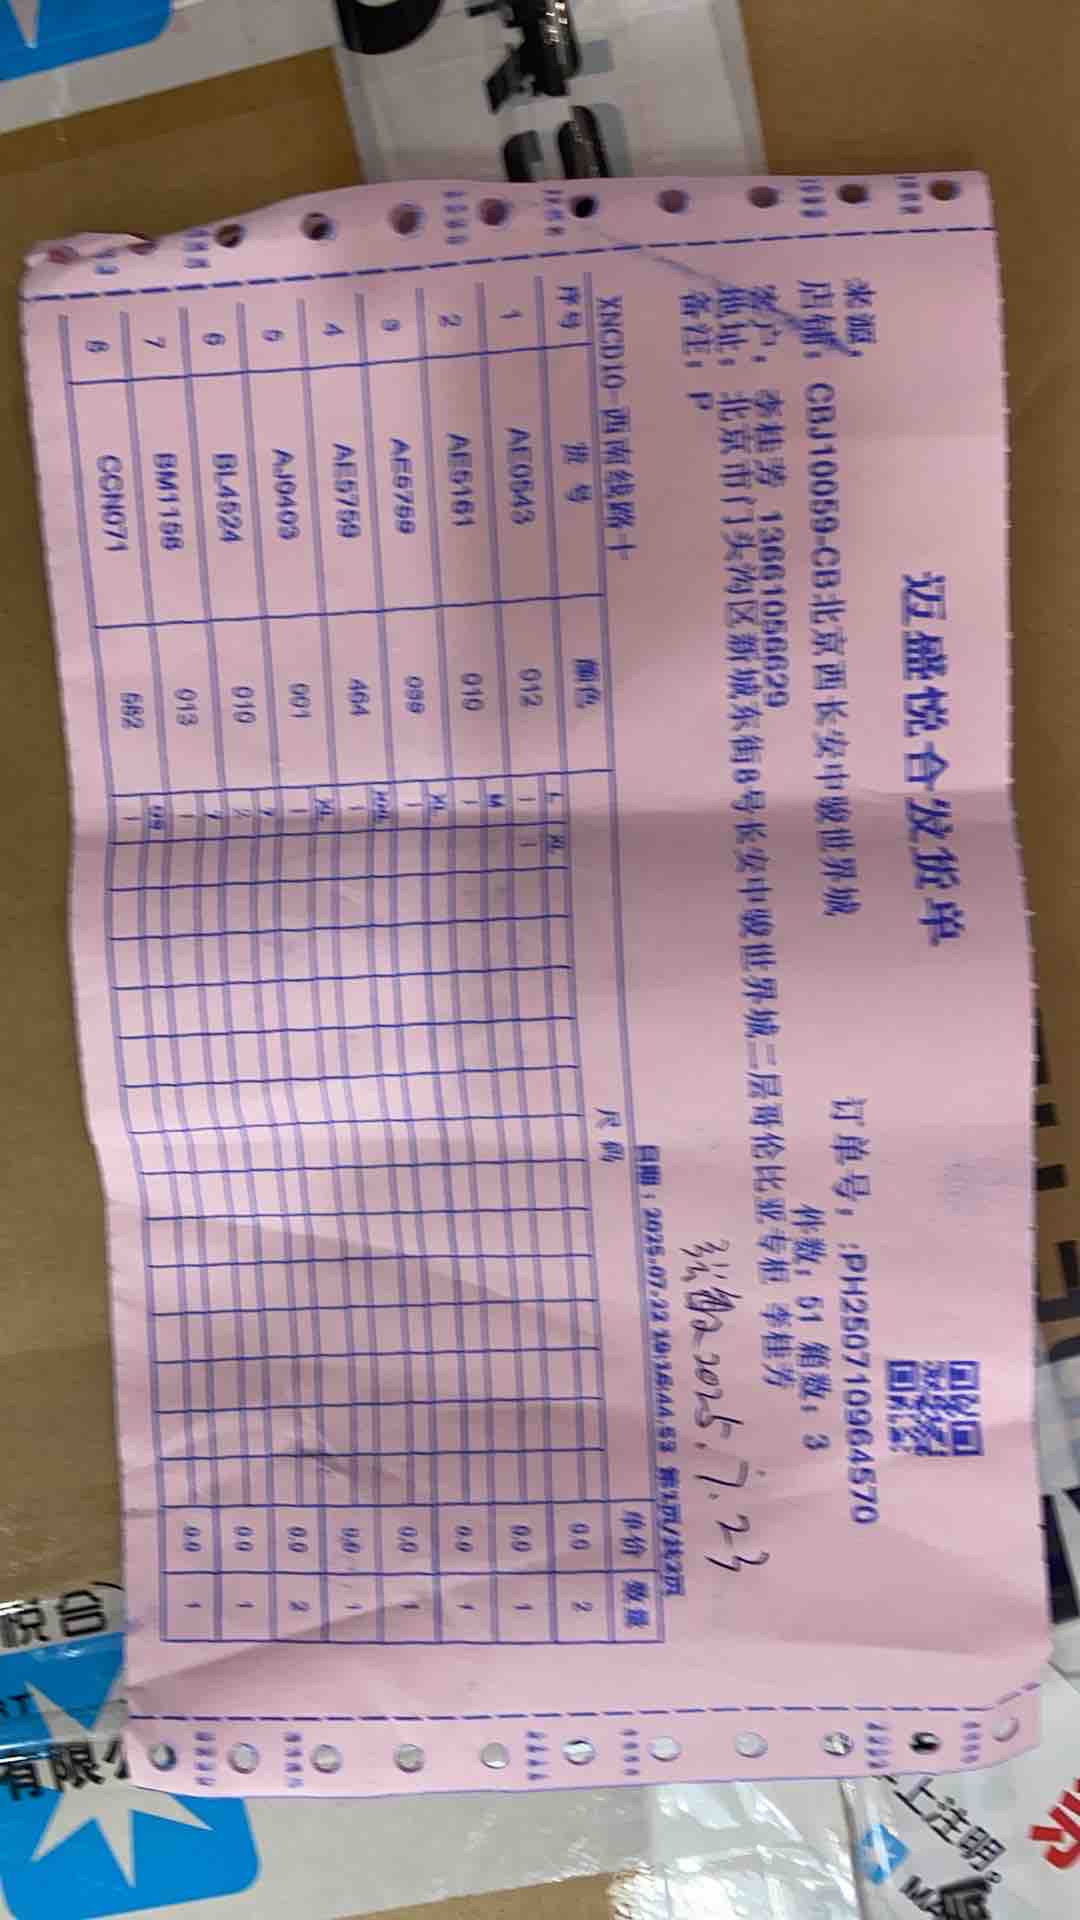 迈盛悦合发货单
来源:
订单号: :PH250710964570
店铺: CBJ10059-CB北京西长安中骏世界城
件数: 51 箱数: 3
客户: 李桂芳 13661056629
地址: 北京市门头沟区新城东街8号长安中骏世界城二层哥伦比亚专柜 李桂芳
备注: P
2025.7.23
XNCD10-西南线路十
日期: 2025-07-22 第1页/共2页
序号 货号 颜色 尺码 单价 数量
L XL
1 AE0543 012 1 1 0.0 2
M
2 AE5161 010 1 0.0 1
XL
3 AE5759 099 1 0.0 1
XXL
4 AE5759 464 1 0.0 1
XL
5 AJ0403 001 1 0.0 1
7
6 BL4524 010 2 0.0 2
7
7 BM1156 013 1 0.0 1
OS
8 CCN071 682 1 0.0 1
悦合
有限公
上注明。